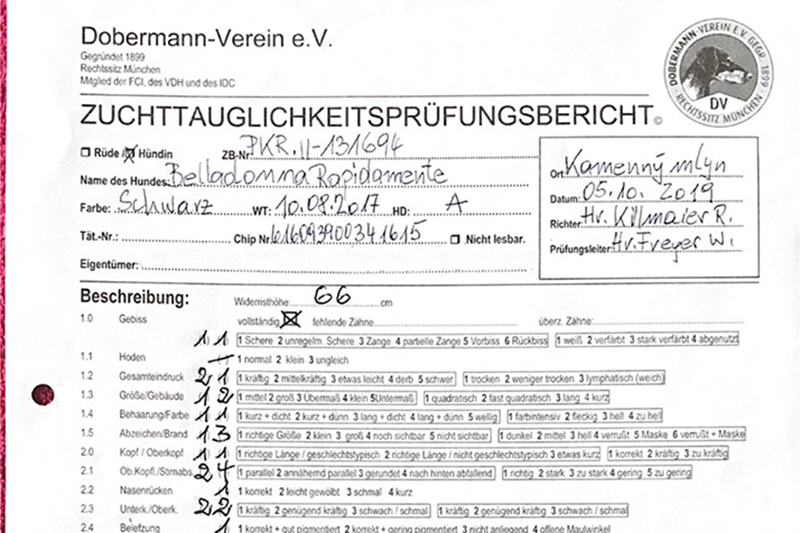 Dobermann-Verein e.V.
Gegründet 1899
Rechtssitz München
Mitglied der FCI, des VDH und des IDC
DOBERMANN-VEREIN E.V. GEGR. 1899
RECHTSSITZ MÜNCHEN
DV
ZUCHTTAUGLICHKEITSPRÜFUNGSBERICHT©
Rüde / Hündin ZB-Nr. PKR.II-131694
Name des Hundes: Belladonna Rapidamente
Farbe: Schwarz WT: 10.08.2017 HD: A
Tät.-Nr.: Chip Nr. 616093900341615 Nicht lesbar.
Eigentümer:
Ort: Kamenný mlyn
Datum: 05.10.2019
Richter: Hr. Killmaier R.
Prüfungsleiter: Hr. Freyer W.
Beschreibung: Widerristhöhe: 66 cm
1.0 Gebiss vollständig fehlende Zähne überz. Zähne:
1 1 1 Schere 2 unregelm. Schere 3 Zange 4 partielle Zange 5 Vorbiss 6 Rückbiss 1 weiß 2 verfärbt 3 stark verfärbt 4 abgenutzt
1.1 Hoden 1 normal 2 klein 3 ungleich
1.2 Gesamteindruck 2 1 1 kräftig 2 mittelkräftig 3 etwas leicht 4 derb 5 schwer 1 trocken 2 weniger trocken 3 lymphatisch (weich)
1.3 Größe/Gebäude 1 2 1 mittel 2 groß 3 Übermaß 4 klein 5 Untermaß 1 quadratisch 2 fast quadratisch 3 lang 4 kurz
1.4 Behaarung/Farbe 1 1 1 kurz + dicht 2 kurz + dünn 3 lang + dicht 4 lang + dünn 5 wellig 1 farbintensiv 2 fleckig 3 hell 4 zu hell
1.5 Abzeichen/Brand 1 3 1 richtige Größe 2 klein 3 groß 4 noch sichtbar 5 nicht sichtbar 1 dunkel 2 mittel 3 hell 4 verrußt 5 Maske 6 verrußt + Maske
2.0 Kopf / Oberkopf 1 1 1 richtige Länge / geschlechtstypisch 2 richtige Länge / nicht geschlechtstypisch 3 etwas kurz 1 korrekt 2 kräftig 3 zu kräftig
2.1 Ob.Kopfl./Stirnabs. 2 4 1 parallel 2 annähernd parallel 3 gerundet 4 nach hinten abfallend 1 richtig 2 stark 3 zu stark 4 gering 5 zu gering
2.2 Nasenrücken 1 1 korrekt 2 leicht gewölbt 3 schmal 4 kurz
2.3 Unterk./Oberk. 2 2 1 kräftig 2 genügend kräftig 3 schwach / schmal 1 kräftig 2 genügend kräftig 3 schwach / schmal
2.4 Belefzung 1 1 korrekt + gut pigmentiert 2 korrekt + gering pigmentiert 3 nicht anliegend 4 offene Maulwinkel